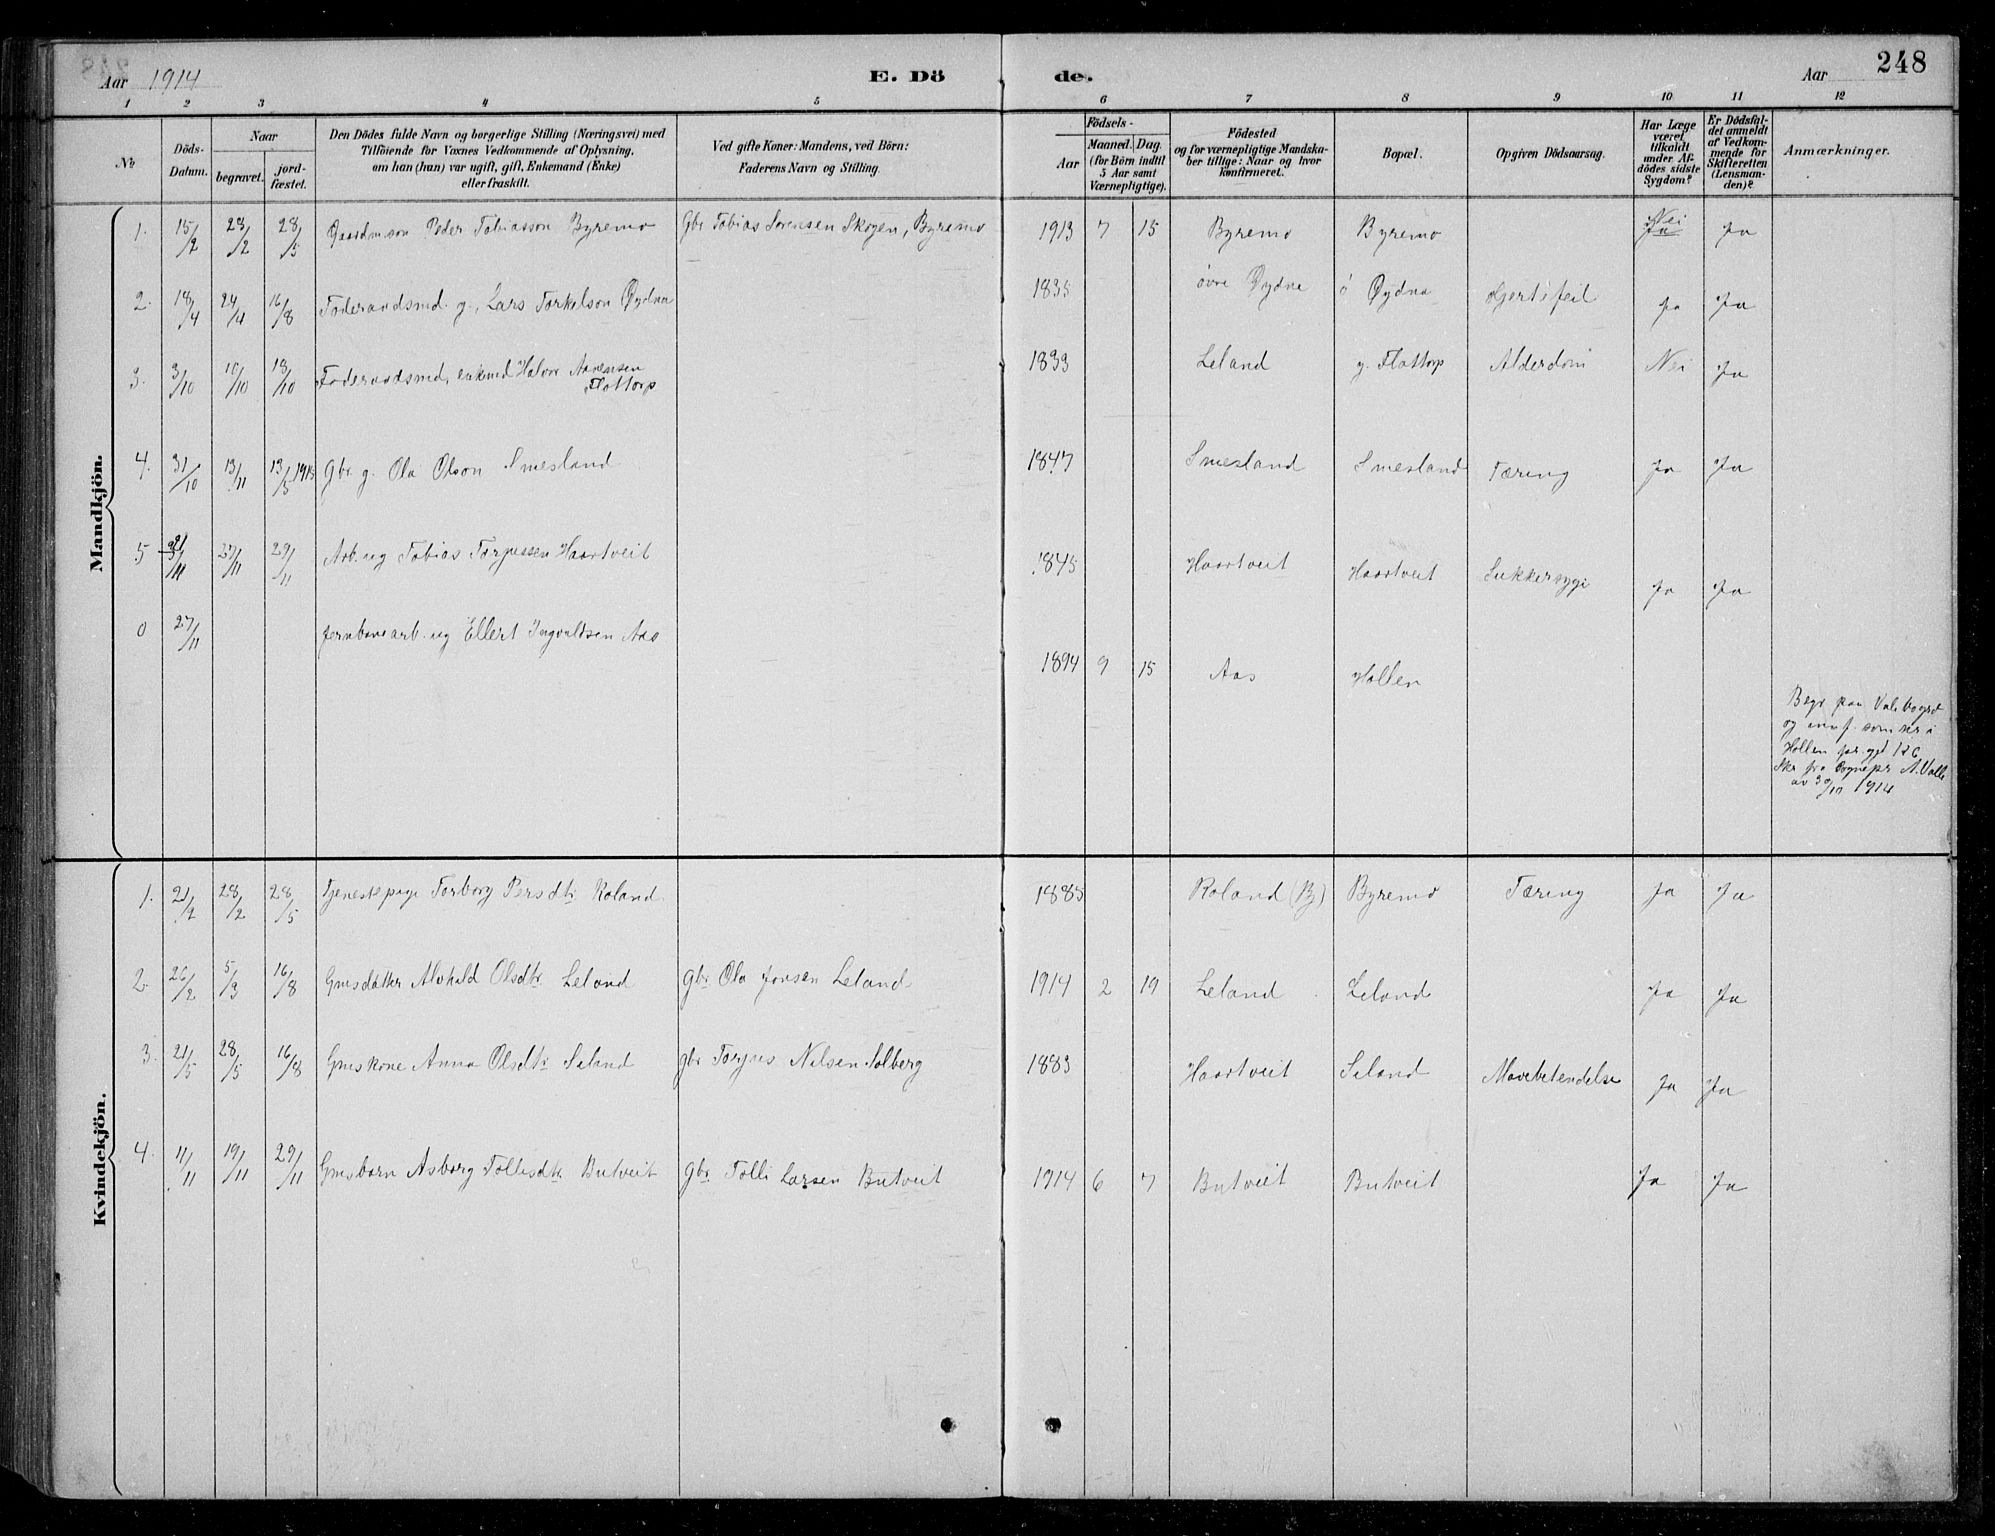 248
Aar 1914
E. Dö
de.
Aar
1 2 3 4 5 6 7 8 9 10 11 12
No
Döds-Datum.
Naar
begravet.
jord-fæstet.
Den Dödes fulde Navn og borgerlige Stilling (Næringsvei) med
Tilföiende for Voxnes Vedkommende af Oplysning,
om han (han) var ugift, gift, Enkemand (Enke)
eller fraskilt.
Ved gifte Koner: Mandens, ved Börn:
Faderens Navn og Stilling.
Födsels-
Aar
Maaned. Dag.
(for Börn indtil
5 Aar samt
Værnepligtige).
Födested
og for værnepligtige Mandska-
ber tillige: Naar og hvor
konfirmeret.
Bopæl.
Opgiven Dödsaarsag.
Har Læge
været
tilkaldt
under Af-
dödes sidste
Sygdom?
Er Dödsfal-
det anmeldt
af Vedkom-
mende for
Skifteretten
(Lensman-
den)?
Anmærkninger.
Mandkjön.
1. 15/2 28/2 28/5 Gaardmson Peder Tobiasson Byremo Gbr Tobias Sorensen Skogen, Byremo 1913 7 15 Byremo Byremo Nei Ja Ja
2. 18/4 24/4 16/8 Foderaadsmd. g., Lars Torkelson Øydna 1835 øvre Øydna ö Øydna Hjertefeil ja Ja
3. 3/10 10/10 13/10 Foderaadsmd, enkmd Halvor Aanensen
Flottorp 1833 Leland g. Flottorp Alderdom Nei Ja
4. 31/10 13/11 13/5 1915 Gbr g. Ola Olson Smesland 1847 Smesland Smesland Tæring Ja Ja
5 21/11 27/11 29/11 Arb. ug Tobias Torjussen Haartveit 1845 Haartveit Haartveit Sukkersyge Ja Ja
0 27/11 jernbanearb. ug Ellert Ingvaldsen Aas 1894 9 15 Aas Hollen
Begr paa Valebogrd
og
som
i
Hollen
Skr fra Sognepr A. Valle
av 30/11 1914
Kvindekjön.
1. 21/2 28/2 28/5 Tjenestepige Torborg Persdtr Roland 1885 Roland (By) Byremo Tæring Ja Ja
2. 26/2 5/3 16/8 Gmsdatter Alvhild Olsdtr Leland gbr Ola Jonsen Leland 1914 2 19 Leland Leland Ja Ja
3. 21/5 28/5 16/8 Gmskone Anna Olsdtr Seland gbr Torjus Nilsen Solberg 1883 Haartveit Seland Mavebetendelse Ja Ja
4. 11/11 19/11 29/11 Gmsbarn Asborg Tollisdtr Butveit gbr Tolli Larsen Butveit 1914 6 7 Butveit Butveit Ja Ja